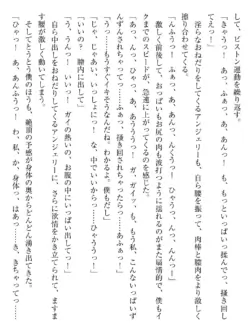 して、ピストン運動を繰り返す。
「ひゃうっ、あ、あんっ……！　も、もっといっぱい揉んでっ、つ、掻き回し
てえっ……！」
淫らなおねだりをしてくるアンジェリーも、自ら腰を振って、肉棒と膣肉をより激しく
擦り合わせてくる。
「んふうっ！　ふぁっ、あ、あんっ、んくうっ！　ひゃうっ、んっ、んんっ……！」
激しく前後して、おっぱいもお尻の肉も波打つ有様がまた扇情的で、僕もイ
クまでのスピードが、急速に上がっていくのを感じた。
「ひゃうっ、あんっ……！　ガ、ガイッ、も、もう私、こんないっぱいず
んずんされちゃってっ……ふぁっ、掻き回されちゃったらっ……あふぁっ……！」
「あ……もうすぐイキそうなんだね、わかるよ。僕もだし」
「じゃ、じゃあいっ、いっしょに……な、中でいいからっ……ひゃううっ……！」
「いいの？　膣内に出して」
「う、うんっ……！　ガイの熱いの、お腹の中にいっぱい出してっ……！」
自ら中出しをおねだりしてくるアンジェリーに、さらに欲情をかき立てられて、ますま
す腰が激しく動いてしまう。
そしてとうとう僕のほうも、絶頂の予感が身体の奥からどんどん湧き出てきた。
「ひゃうっ……あ、あふぁっ……！　わ、私、か、身体っ、はぁっ……き、きちゃってっ……